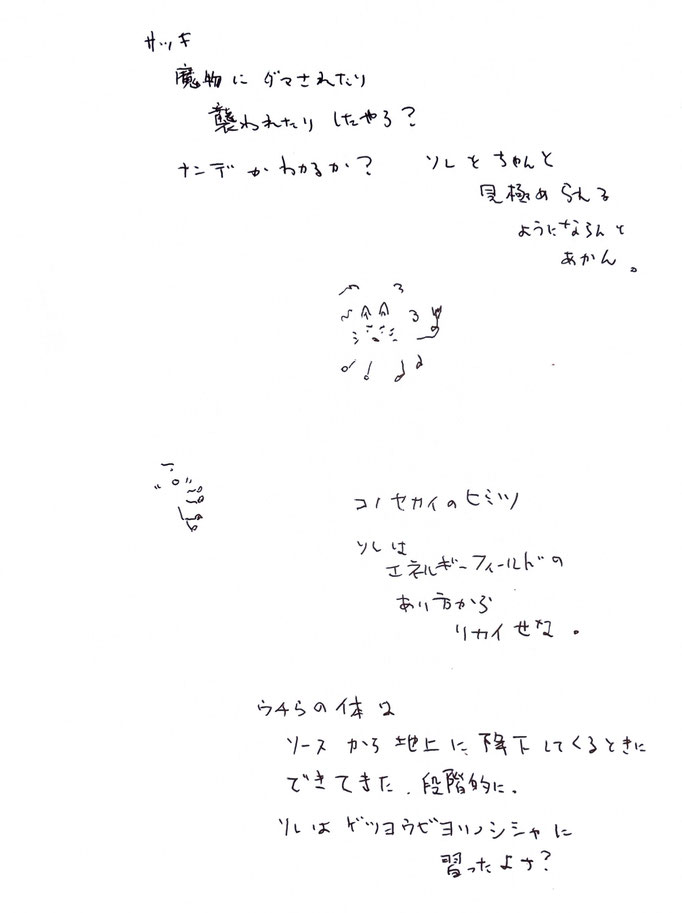 サッキ
魔物に ダマされたり
襲われたり したやろ？
ナンデかわかるか？
ソレをちゃんと
見極められる
ようにならんと
あかん。
コノセカイのヒミツ
ソレは
エネルギーフィールドの
あり方から
リカイせな。
ウチらの体は
ソースから地上に、降下してくるときに
できてきた、段階的に。
ソレはゲツヨウビヨリノシシャに
習ったよな？